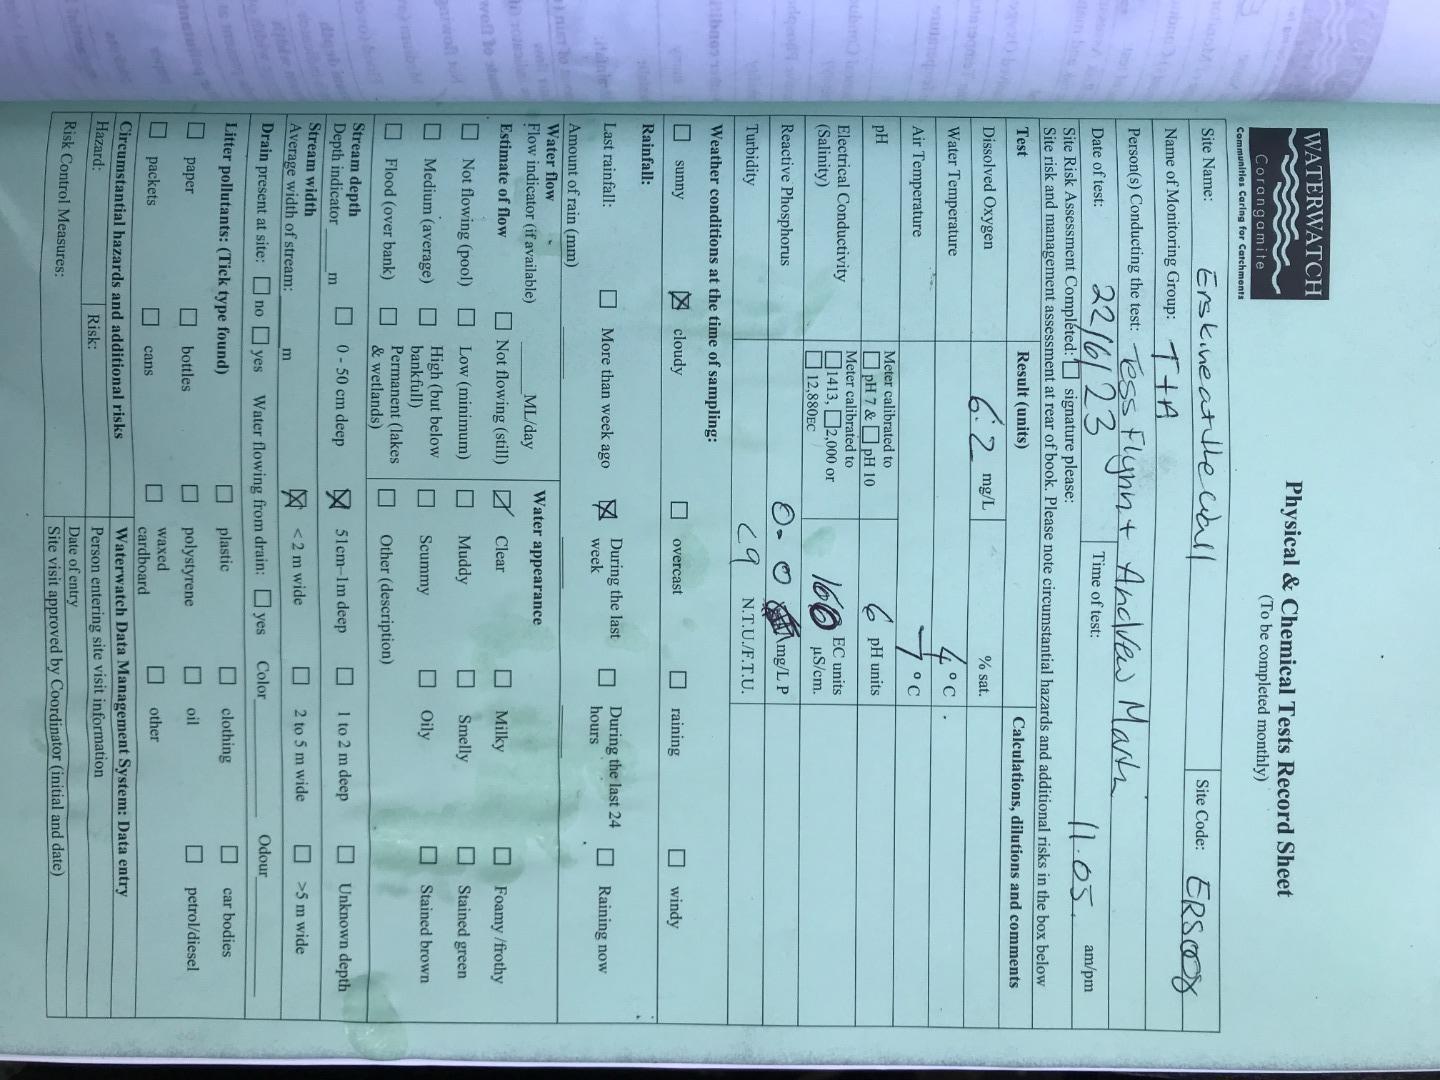 WATERWATCH
Corangamite
Communities Caring for Catchments
Physical & Chemical Tests Record Sheet
(To be completed monthly)
Site Name: Erskine at the Wall Site Code: ERS008
Name of Monitoring Group: T + A
Person(s) Conducting the test: Tess Flynn + Andrew Martin
Date of test: 22/6/23 Time of test: 11.05 am/pm
Site Risk Assessment Completed: ☐ signature please:
Site risk and management assessment at rear of book. Please note circumstantial hazards and additional risks in the box below
Test Result (units) Calculations, dilutions and comments
Dissolved Oxygen 6.2 mg/L % sat.
Water Temperature 4 °C
Air Temperature 7 °C
pH Meter calibrated to ☐ pH 7 & ☐ pH 10 6 pH units
Electrical Conductivity (Salinity) Meter calibrated to ☐ 1413, ☐ 2,000 or ☐ 12,880EC 160 EC units µS/cm.
Reactive Phosphorus 0.0 mg/L P
Turbidity <9 N.T.U./F.T.U.
Weather conditions at the time of sampling:
☐ sunny ☒ cloudy ☐ overcast ☐ raining ☐ windy
Rainfall:
Last rainfall: ☐ More than week ago ☒ During the last week ☐ During the last 24 hours ☐ Raining now
Amount of rain (mm)
Water flow
Flow indicator (if available) ______ML/day
Estimate of flow ☐ Not flowing (still)
☐ Not flowing (pool) ☐ Low (minimum)
☐ Medium (average) ☐ High (but below bankfull)
☐ Flood (over bank) ☐ Permanent (lakes & wetlands)
Water appearance
☒ Clear ☐ Milky ☐ Foamy /frothy
☐ Muddy ☐ Smelly ☐ Stained green
☐ Scummy ☐ Oily ☐ Stained brown
☐ Other (description)
Stream depth
Depth indicator ______ m ☐ 0 - 50 cm deep ☒ 51cm–1m deep ☐ 1 to 2 m deep ☐ Unknown depth
Stream width
Average width of stream: ______ m ☒ < 2 m wide ☐ 2 to 5 m wide ☐ >5 m wide
Drain present at site: ☐ no ☐ yes Water flowing from drain: ☐ yes Color______ Odour______
Litter pollutants: (Tick type found) ☐ plastic ☐ clothing ☐ car bodies
☐ paper ☐ bottles ☐ polystyrene ☐ oil ☐ petrol/diesel
☐ packets ☐ cans ☐ waxed cardboard ☐ other
Circumstantial hazards and additional risks
Hazard: Risk:
Risk Control Measures:
Waterwatch Data Management System: Data entry
Person entering site visit information
Date of entry
Site visit approved by Coordinator (initial and date)